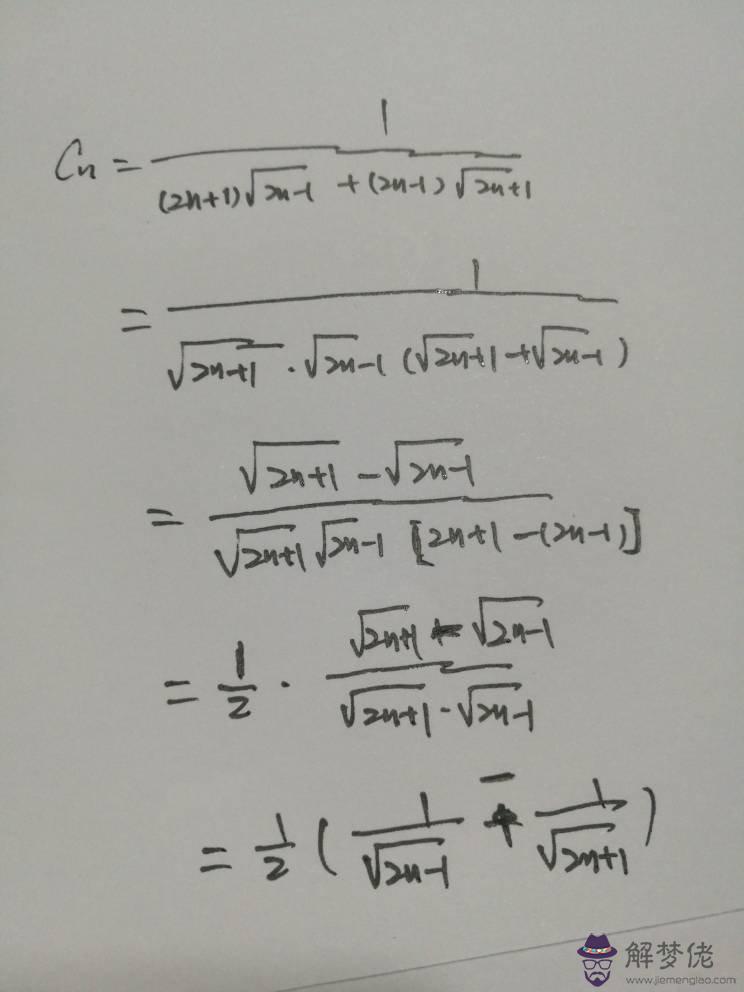 Cn = 1 / ((2n+1)√(2n-1) + (2n-1)√(2n+1))
= 1 / (√(2n+1) · √(2n-1) (√(2n+1) + √(2n-1)))
= (√(2n+1) - √(2n-1)) / (√(2n+1) √(2n-1) [2n+1 - (2n-1)])
= 1/2 · (√(2n+1) - √(2n-1)) / (√(2n+1) · √(2n-1))
= 1/2 (1/√(2n-1) - 1/√(2n+1))
解梦佬
www.jiemenglao.com